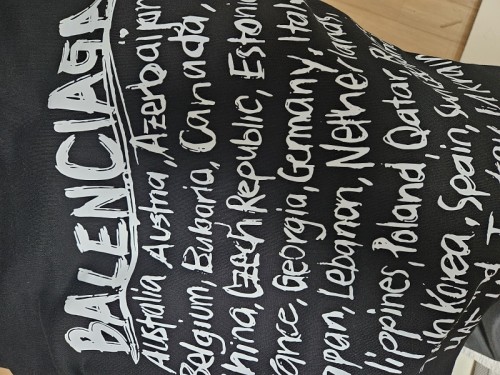 BALENCIAGA
Australia Austria, Azerbaijan
Belgium, Bulgaria, Canada,
China, Czech Republic, Estonia
France, Georgia, Germany, Italy
Japan, Lebanon, Netherlands,
Philippines, Poland Qatar,
South Korea, Spain,